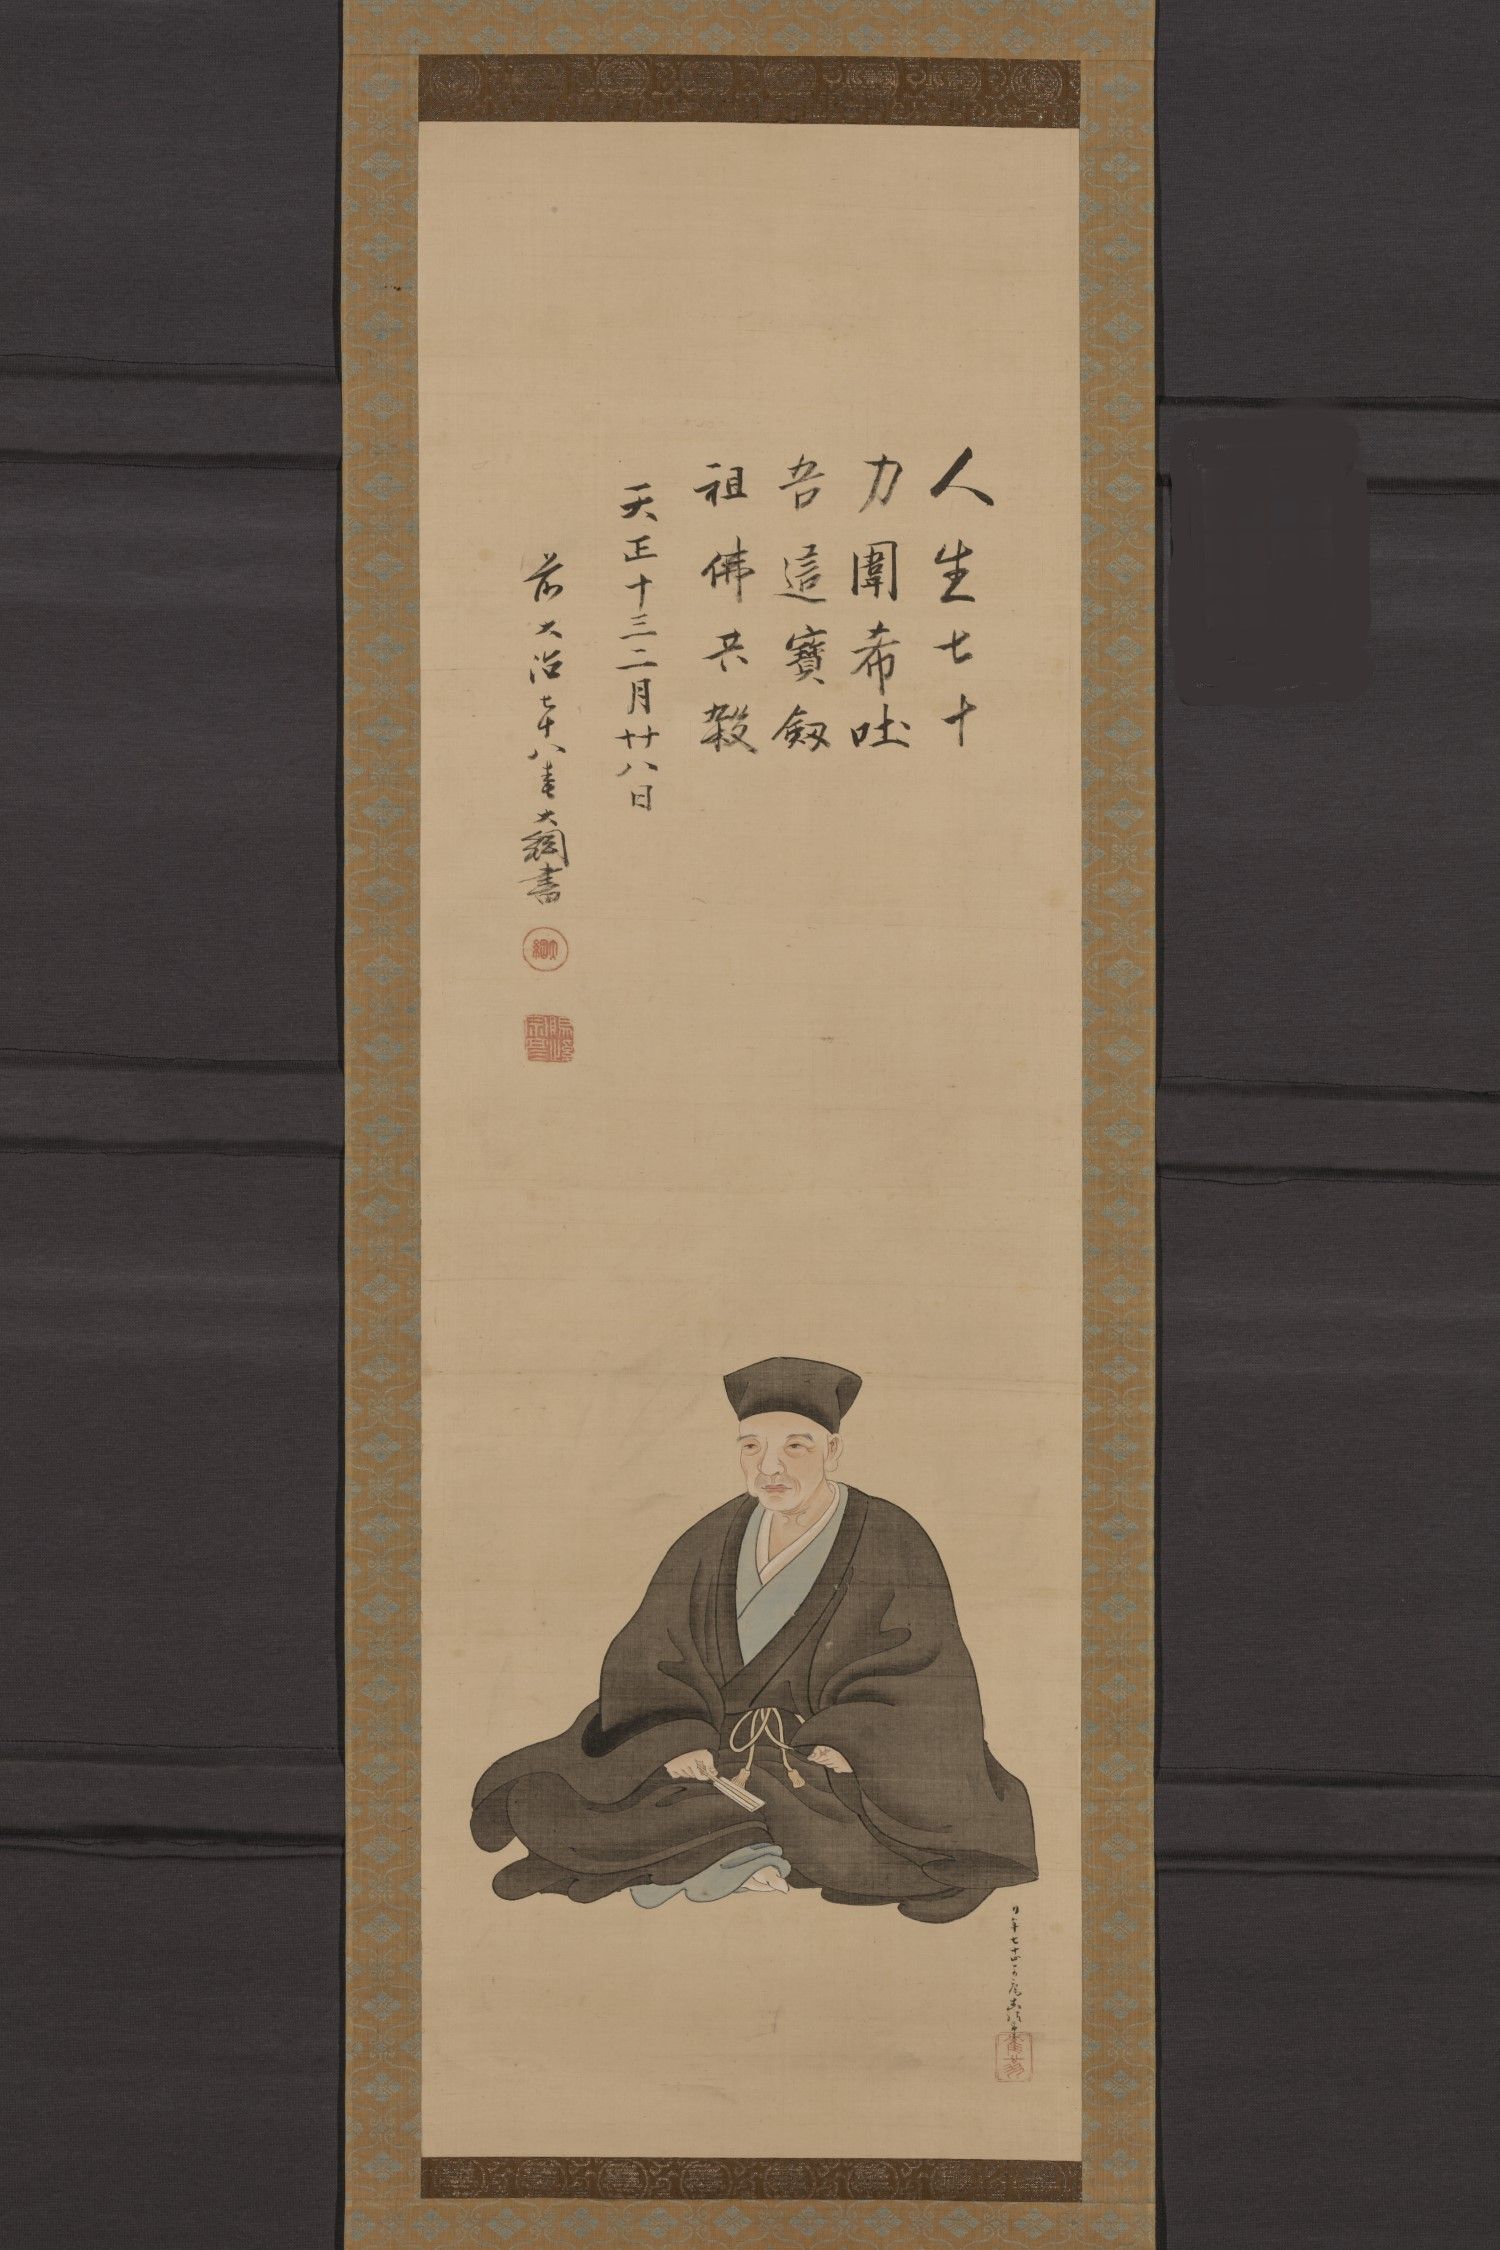 人生七十
力囲希咄
吾這寶劔
祖佛共殺
天正十三二月廿八日
前大治七十八叟大綱書